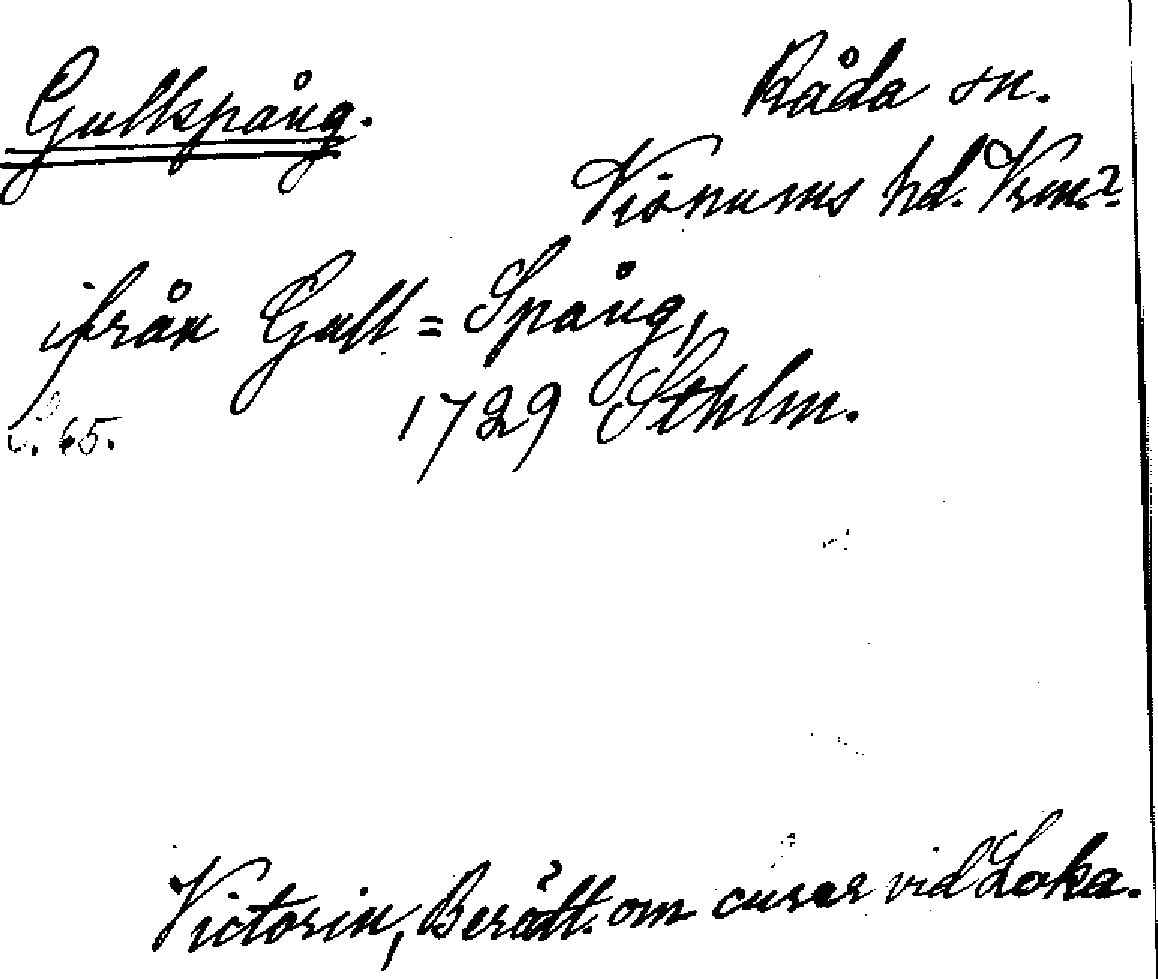 Gullspång.
Råda sn.
Visnums hd. Vrm.?
ifrån Gull=Spång,
1729 Sthlm.
s. 65.
Victorin, Berätt. om curer vid Loka.